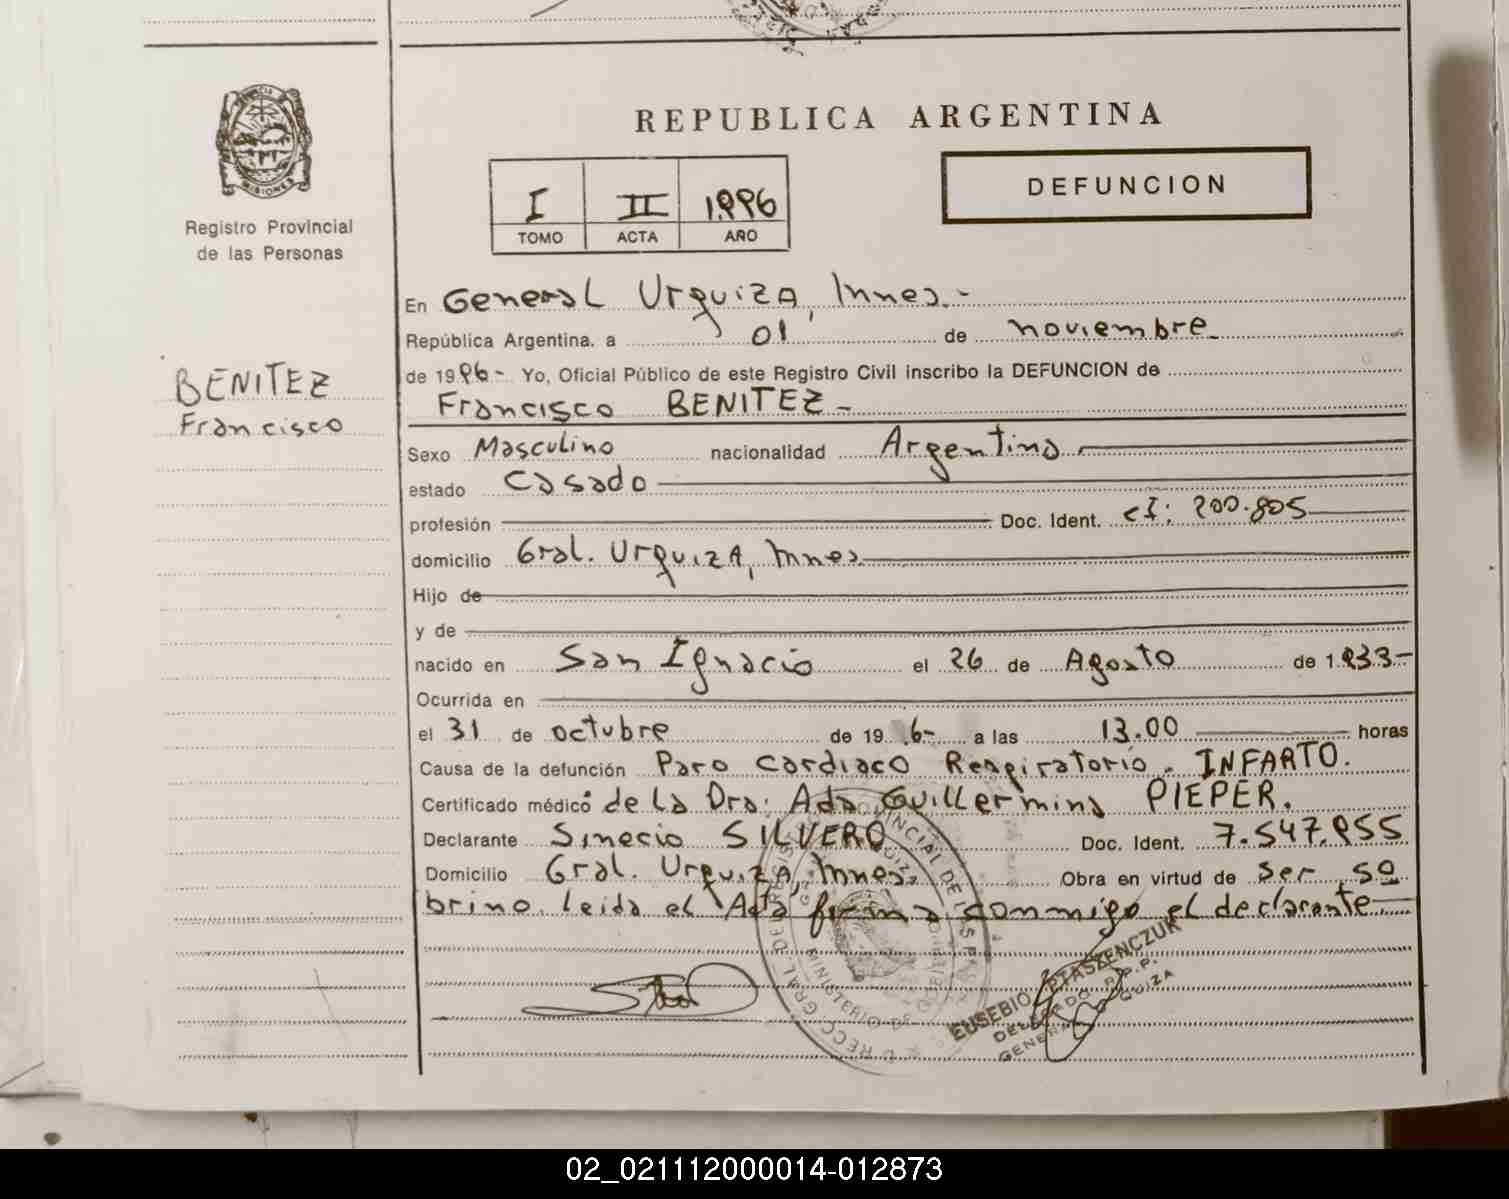 REPUBLICA ARGENTINA
DEFUNCION
I II 1996
TOMO ACTA AÑO
MISIONES
Registro Provincial
de las Personas
BENITEZ
Francisco
En General Urquiza, Mnes.-
República Argentina, a 01 de noviembre
de 1996- Yo, Oficial Público de este Registro Civil inscribo la DEFUNCION de
Francisco BENITEZ-
Sexo Masculino nacionalidad Argentina
estado Casado
profesión Doc. Ident. CI: 200.805
domicilio Gral. Urquiza, Mnes
Hijo de
y de
nacido en San Ignacio el 26 de Agosto de 1.933-
Ocurrida en
el 31 de octubre de 19 6- a las 13.00 horas
Causa de la defunción Paro Cardiaco Respiratorio. INFARTO.
Certificado médico de la Dra. Ada Guillermina PIEPER.
Declarante Sinecio SILVERO Doc. Ident. 7.547.955
Domicilio Gral. Urquiza, Mnes. Obra en virtud de ser so
brino. Leida el Acta firma conmigo el declarante
EUSEBIO PTASZENCZUK
DELEGADO R.P.P.
GENERAL URQUIZA
02_021112000014-012873